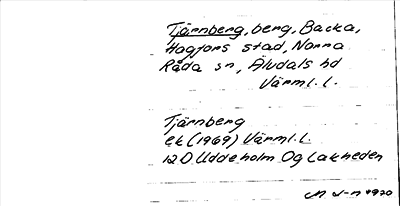 Tjärnberg, berg, Backa,
Hagfors stad, Norra
Råda sn, Älvdals hd
Värml. l.
Tjärnberg
ek (1969) Värml. L.
12 D Uddeholm Og Lakheden
1970